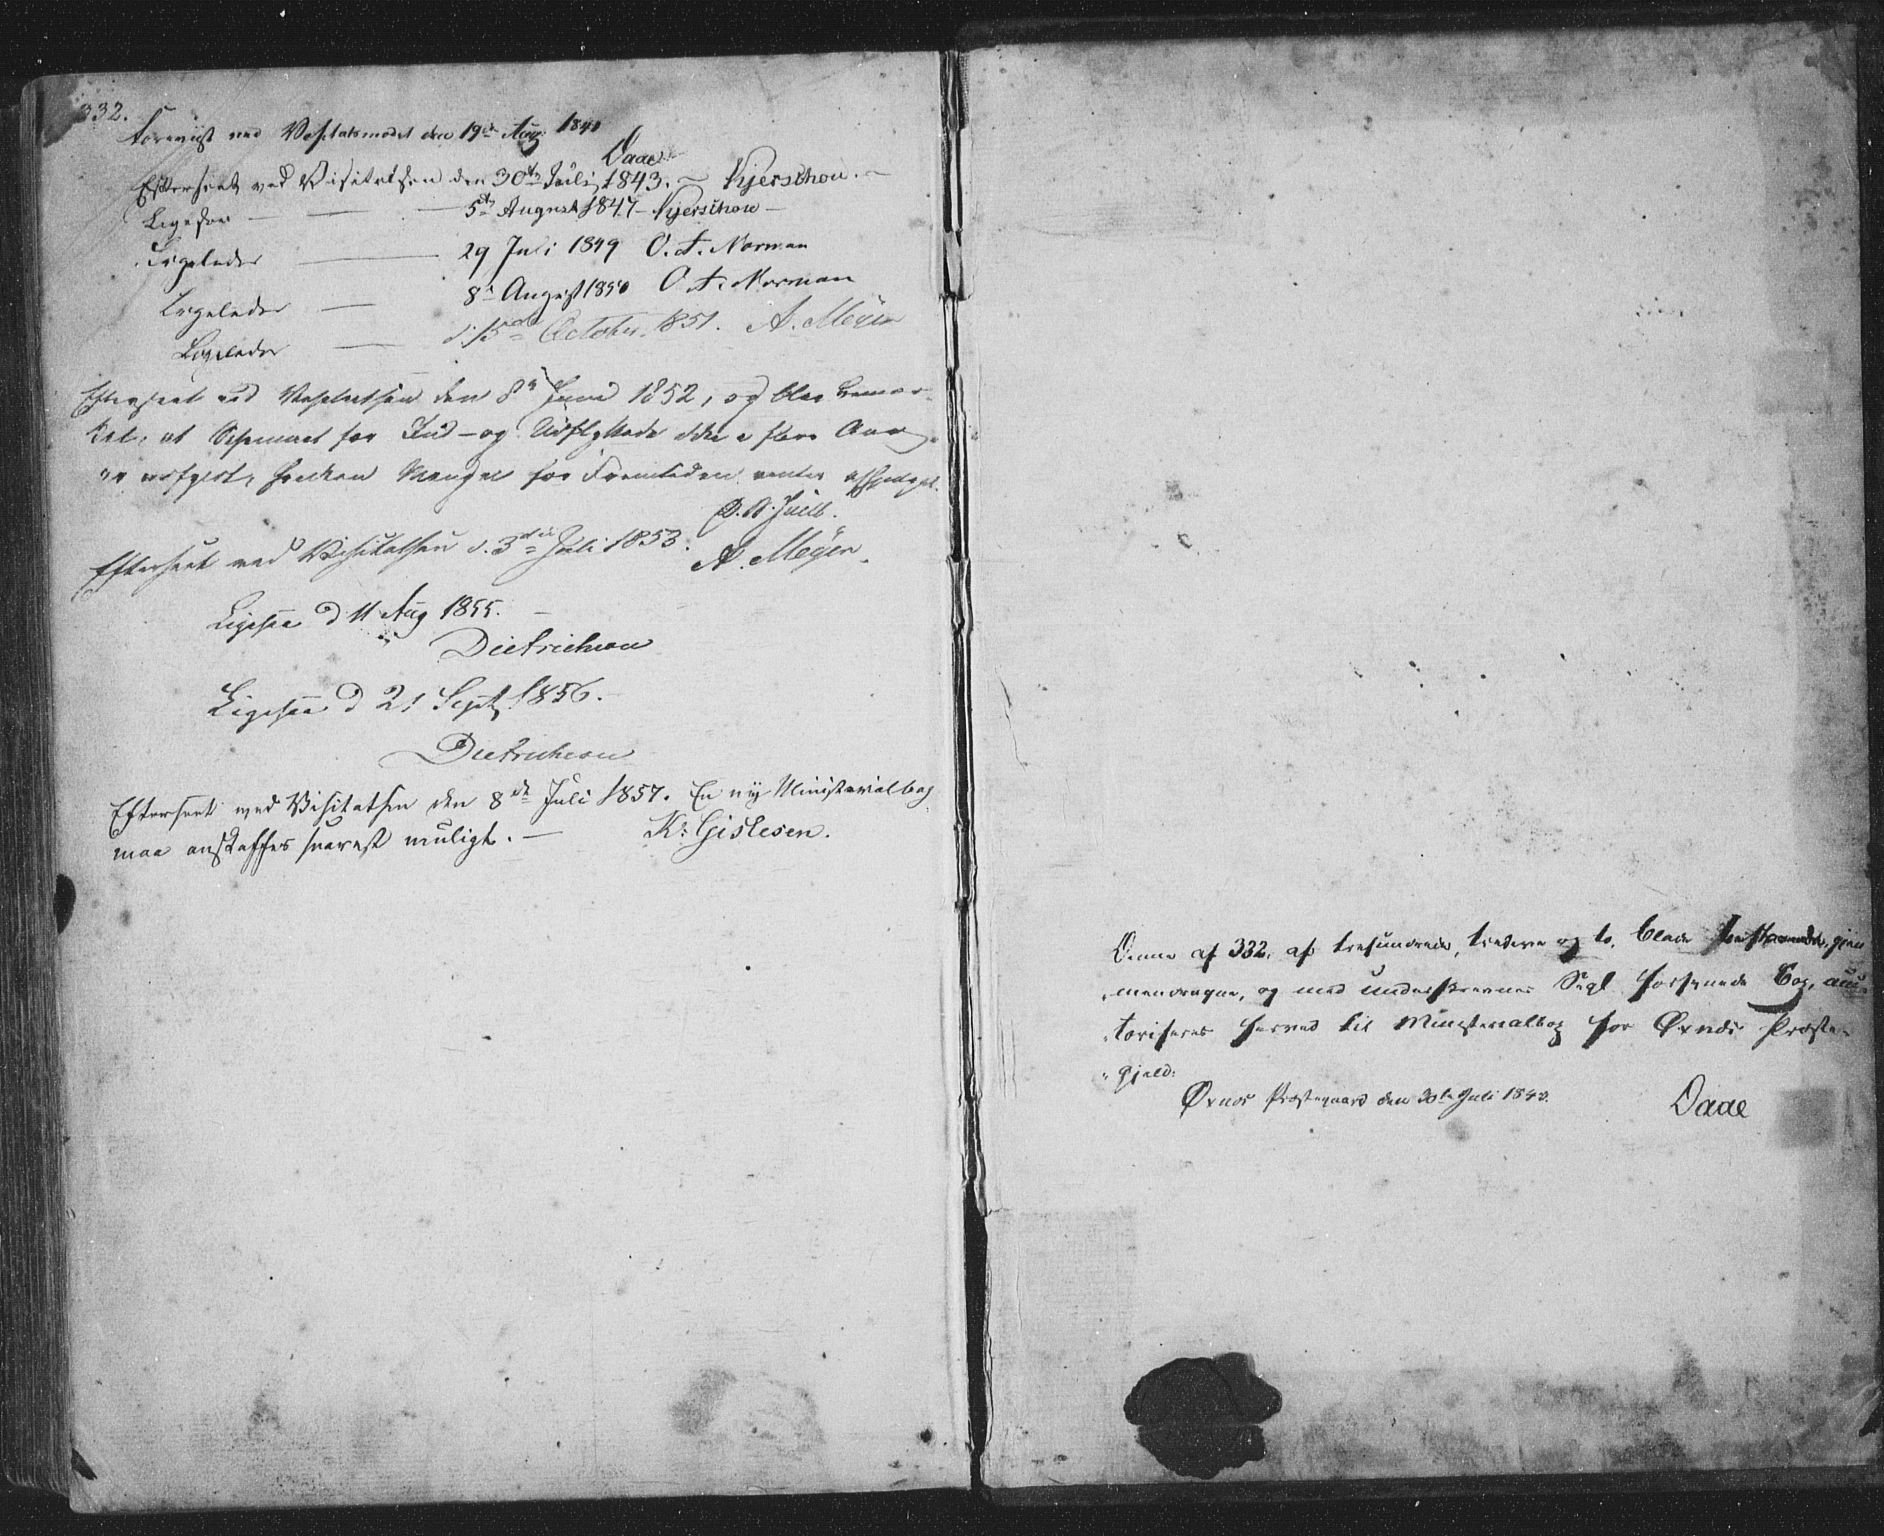 332.
Forevist ved Visitatsmødet den 19de Aug: 1840
Daae
Efterseet ved Visitatsen den 30te Juli 1843. — Kjerschou. —
Ligesaa — — — 5te August 1847 — Kjerschou —
Ligeledes — 29 Juli 1849 O. T. Norman
Ligeledes — 8de August 1850 O. T. Norman
Ligeledes — d. 15de October 1851. A. Meyer
Efterseet ved Visitatsen den 8de Juni 1852, og blev bemær-
ket, at Schemaet for Ind- og Udflyttede ikke i flere Aar
er udfyldt, hvilken Mangel for Fremtiden ventes afhjulpet.
Juell.
Efterseet ved Visitatsen d. 3die Juli 1853. A. Meyer.
Ligesaa d 11 Aug 1855. —
Dietrichson
Ligesaa d 21 Sept 1856.
Dietrichson
Efterseet ved Visitatsen den 8de Juli 1857. En ny Ministerialbog
maa anskaffes snarest muligt. — Kr: Gislesen.
Denne af 332, af trehundrede, tredive og to, Blade bestaaende, gjen-
nemdragne, og med underskrevnes Segl forsynede Bog, au-
toriseres herved til Ministerialbog for Øxnæs Præste-
gjeld.
Øxnæs Præstegaard den 30te Juli 1840.
Daae